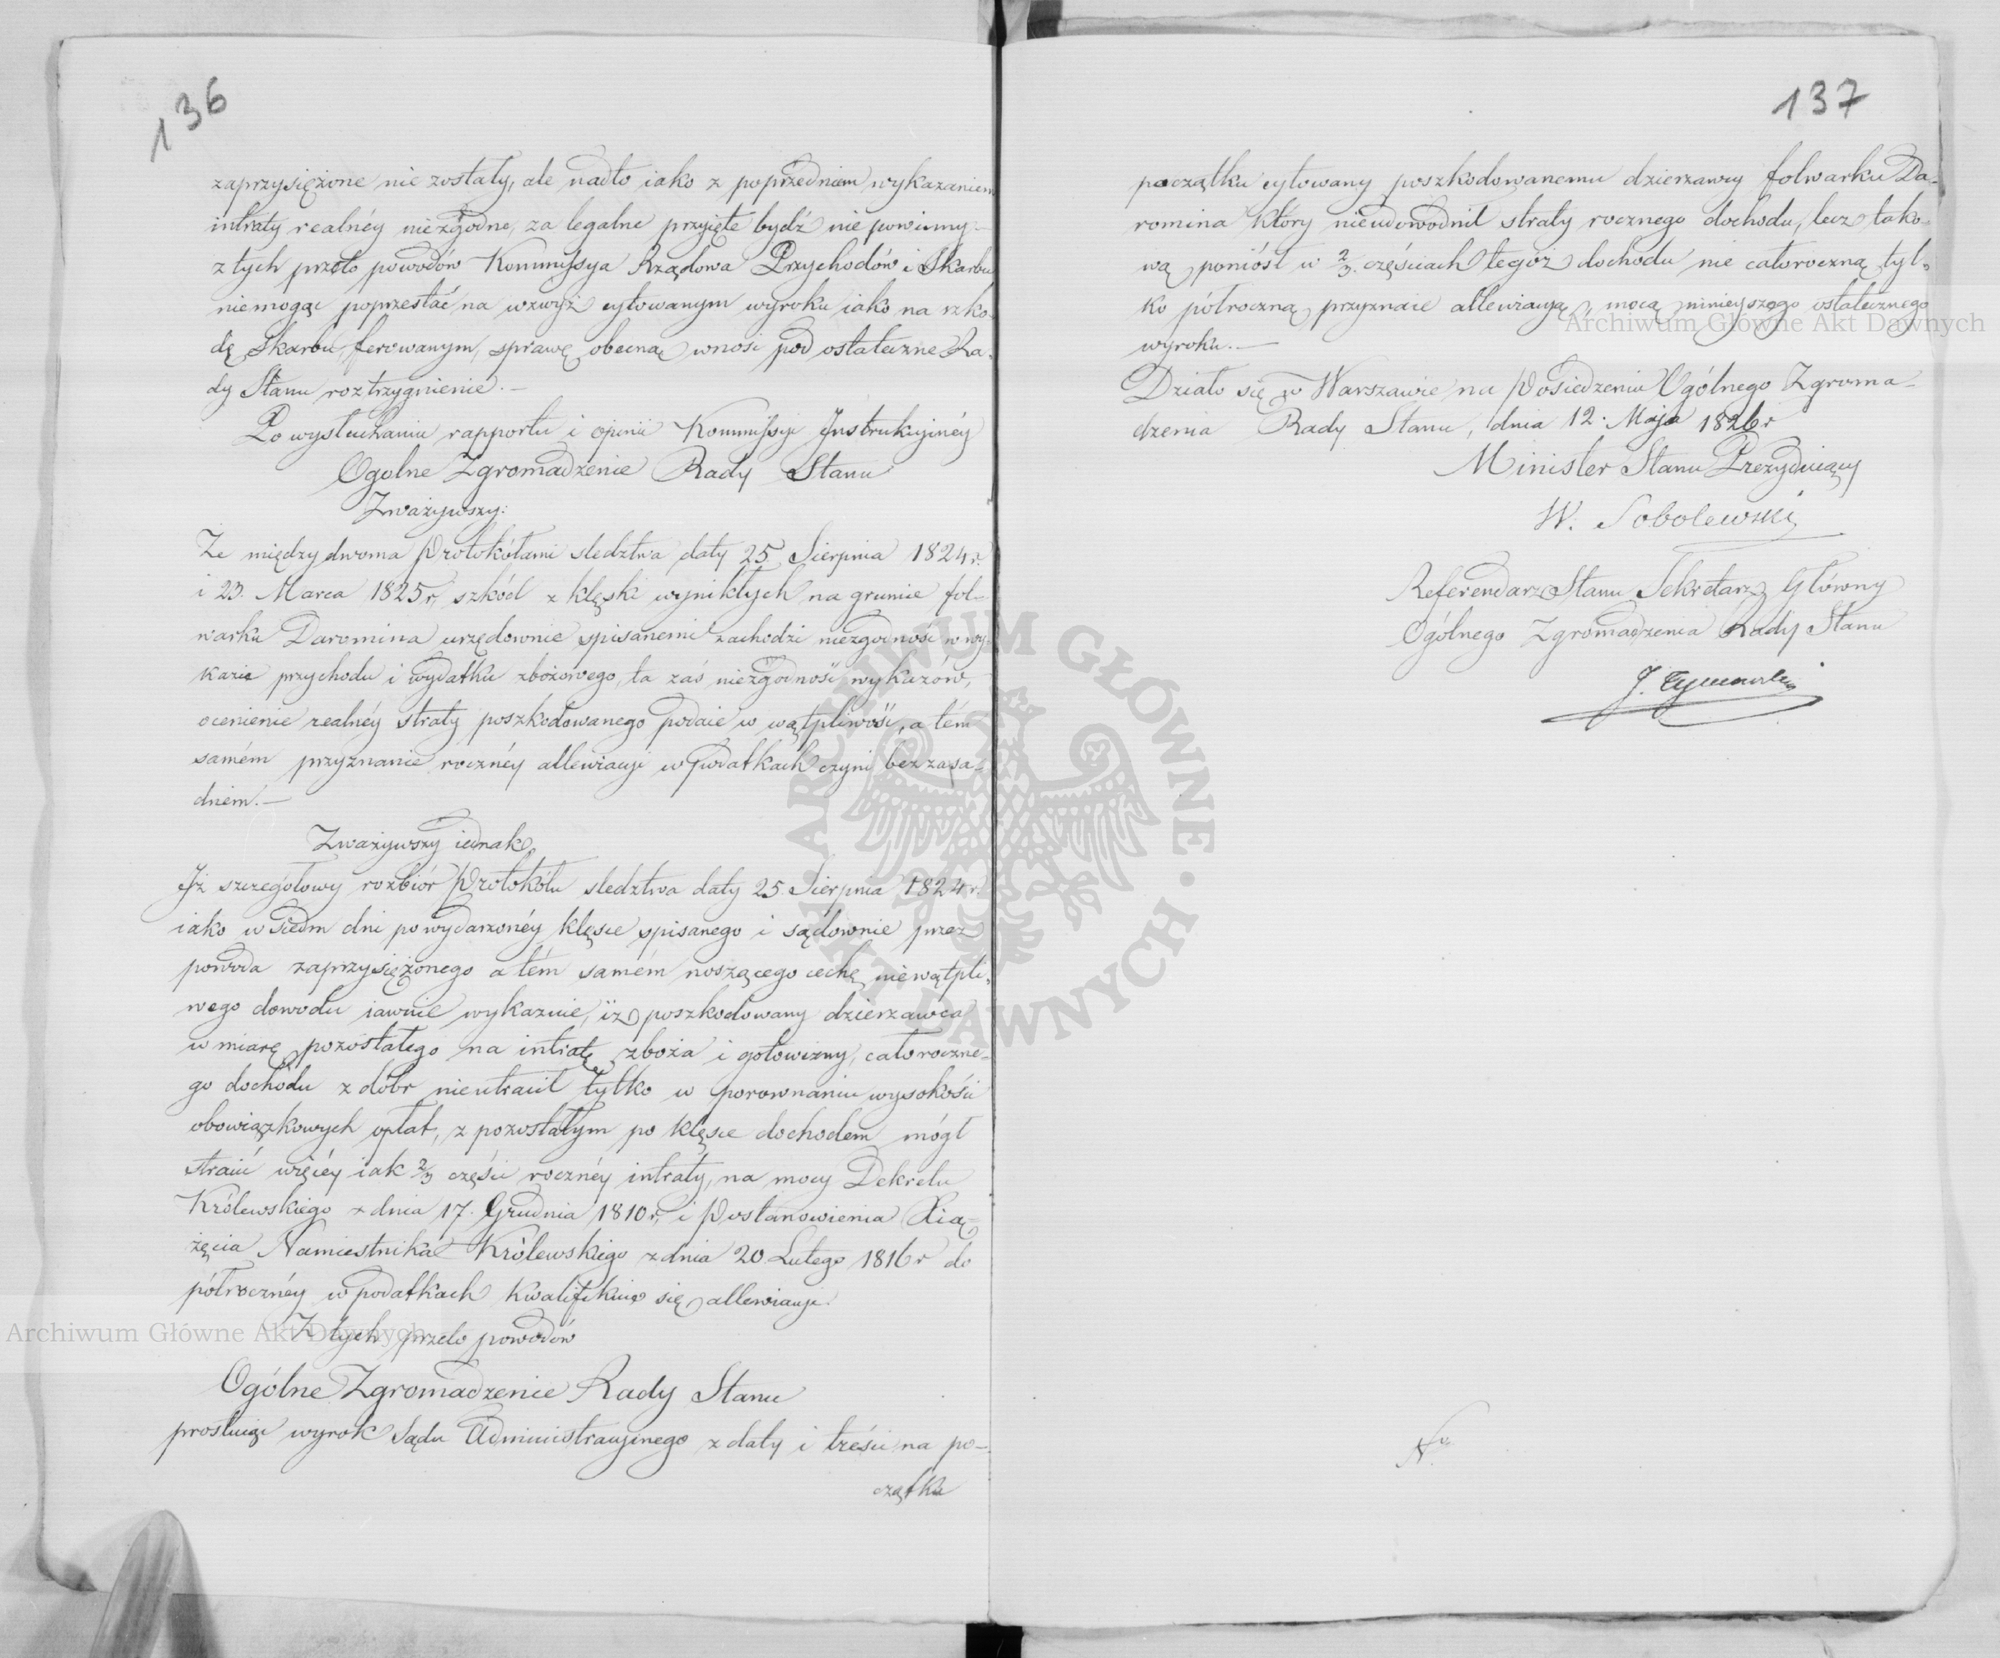 136
zaprzysiężone nie zostały, ale nadto iako z poprzedniem wykazaniem
intraty realnéy niezgodne, za legalne przyięte bydź nie powinny.—
z tych przeto powodów Kommissya Rządowa Przychodów i Skarbu
niemogąc poprzestać na wzwyż cytowanym wyroku iako na szko-
dę Skarbu ferowanym, sprawę obecną wnosi pod ostateczne Ra-
dy Stanu roztrzygnienie.—
Po wysłuchaniu rapportu i opinii Kommissyi Instrukcyjnéy
Ogólne Zgromadzenie Rady Stanu
Zważywszy:
Że między dwoma Protokółami śledztwa daty 25. Sierpnia 1824 r.
i 23. Marca 1825 r. szkód z klęski wynikłych na gruncie fol-
warku Daromina urzędownie spisanemi zachodzi niezgodność w wy-
kazie przychodu i wydatku zbożowego, ta zaś niezgodność wykazów,
ocenienie realnéy straty poszkodowanego podaie w wątpliwość, a tém
samém przyznanie rocznéy allewiacyi w podatkach czyni bezzasa-
dném.—
Zważywszy iednak,
Iż szczegółowy rozbiór Protokółu śledztwa daty 25. Sierpnia 1824 r.
iako w siedm dni po wydarzonéy klęsce spisanego i sądownie przez
powoda zaprzysiężonego a tém samém noszącego cechę niewątpli-
wego dowodu iawnie wykazuie, iż poszkodowany dzierzawca
w miarę pozostałego na intratę zboża i gotowizny, całoroczne-
go dochodu z dóbr nieutracił tylko w porownaniu wysokości
obowiązkowych opłat, z pozostałym po klęsce dochodem mógł
stracić więcéy iak 2/3 części rocznéy intraty, na mocy Dekretu
Królewskiego z dnia 17. Grudnia 1810 r. i Postanowienia Xią-
żęcia Namiestnika Królewskiego z dnia 20 Lutego 1816 r do
półrocznéy w podatkach kwalifikuie się allewiacyi.
Z tych przeto powodów
Ogólne Zgromadzenie Rady Stanu
prostuiąc wyrok Sądu Administracyinego z daty i treści na po-
czątku
137
początku cytowany poszkodowanemu dzierzawcy folwarku Da-
romina który nieudowodnił straty rocznego dochodu, lecz tako-
wą poniósł w 2/3 częściach tegoż dochodu nie całoroczną tyl-
ko półroczną przyznaie allewiacyą, mocą ninieyszego ostatecznego
wyroku.—
Działo się w Warszawie na Posiedzeniu Ogólnego Zgroma-
dzenia Rady Stanu, dnia 12. Maja 1826 r
Minister Stanu Prezyduiący
W. Sobolewski
Referendarz Stanu Sekretarz Główny
Ogólnego Zgromadzenia Rady Stanu
J. Tymowski
Archiwum Główne Akt Dawnych
Archiwum Główne Akt Dawnych
ARCHIWUM GŁÓWNE AKT DAWNYCH